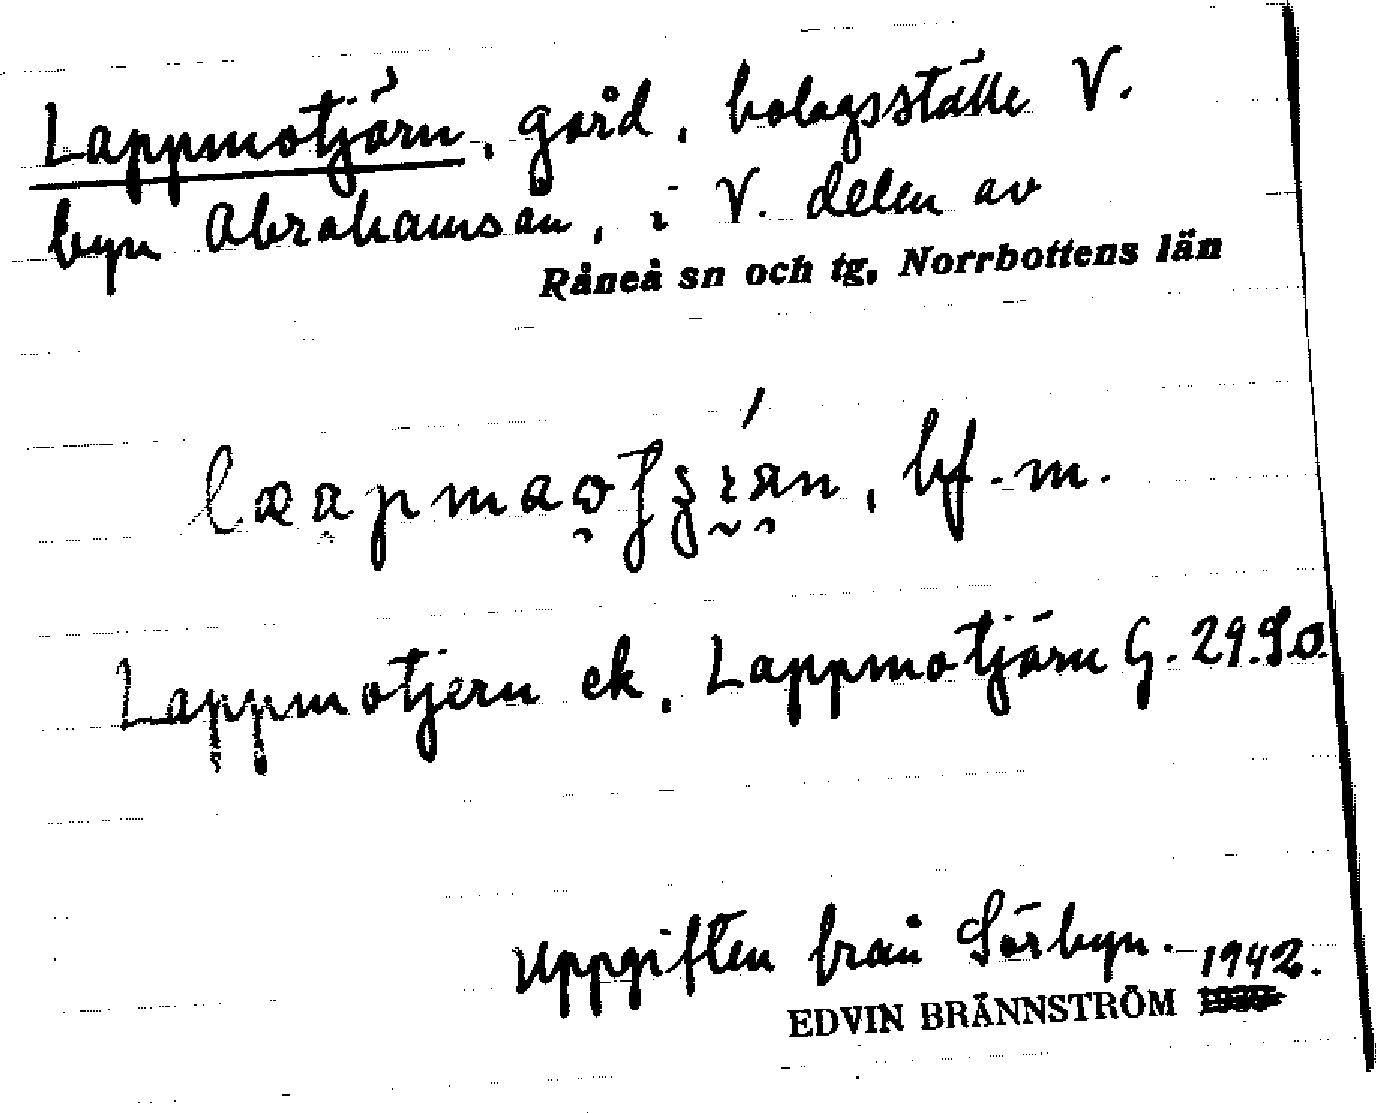 Lappmotjärn, gård, bolagsställe V.
byn Abrahamsån, i V. delen av
Råneå sn och tg, Norrbottens län
bf. m.
Lappmotjern ek, Lappmotjärn G. 29. S.o.
Uppgiften från Sörbyn. 1942.
EDVIN BRÄNNSTRÖM